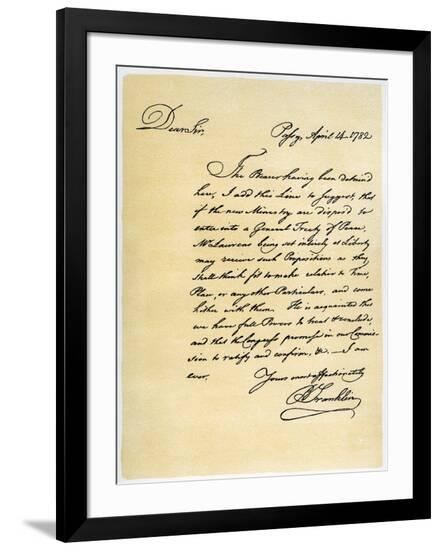 Passy, April 14 1782
Dear Sir,
The Bearer having been detained
here, I add this Line to suggest, that
if the new Ministry are dispos'd to
enter into a General Treaty of Peace,
Mr Laurens being set intirely at Liberty
may receive such Propositions as they
shall think fit to make relative to Time,
Place, or any other Particulars, and come
hither with them. He is acquainted that
we have full Powers to treat & conclude,
and that the Congress promise in our Commis-
sion to ratify and confirm, &c. — I am
ever,
Yours most affectionately
B Franklin